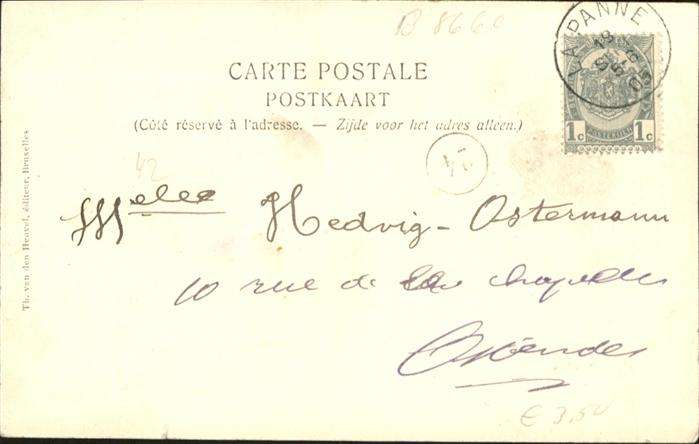 B 8660
LA PANNE
CARTE POSTALE
POSTKAART
(Côté réservé à l'adresse. — Zijde voor het adres alleen.)
1c 1c
42
Melle Hedvig-Ostermann
10 rue de la chapelle
Ostende
Th. van den Heuvel, éditeur, Bruxelles
€ 3,50